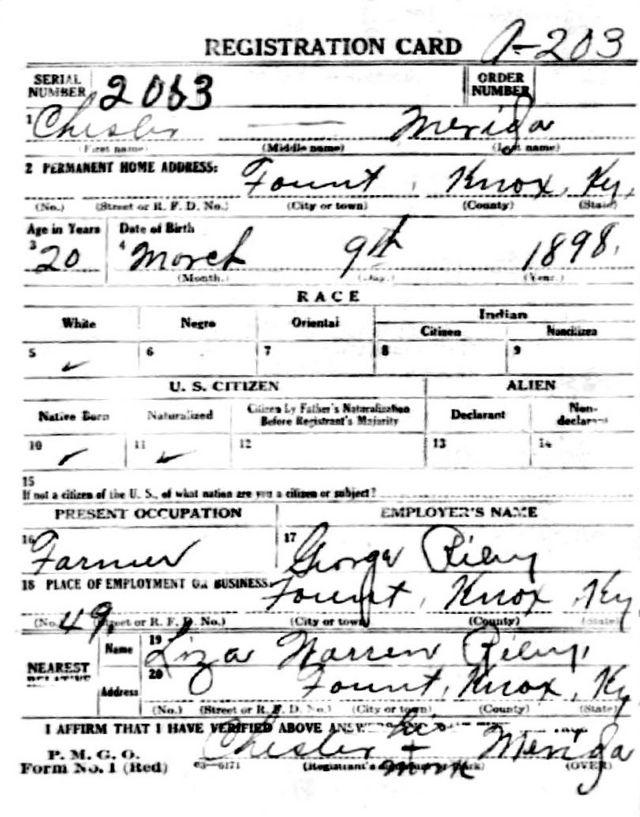 REGISTRATION CARD A-203
SERIAL NUMBER 2063 ORDER NUMBER
1 Chester — Merida
(First name) (Middle name) (Last name)
2 PERMANENT HOME ADDRESS: Fount, Knox, Ky,
(No.) (Street or R. F. D. No.) (City or town) (County) (State)
Age in Years Date of Birth
3 20 4 March 9th 1898,
(Month.) (Day.) (Year.)
RACE
White Negro Oriental Indian
Citizen Noncitizen
5 ✓ 6 7 8 9
U. S. CITIZEN ALIEN
Native Born Naturalized Citizen by Father's Naturalization Before Registrant's Majority Declarant Non-declarant
10 ✓ 11 ✓ 12 13 14
15
If not a citizen of the U. S., of what nation are you a citizen or subject?
PRESENT OCCUPATION EMPLOYER'S NAME
16 Farmer 17 George Riley
18 PLACE OF EMPLOYMENT OR BUSINESS: Fount, Knox, Ky
(No.) 49, (Street or R. F. D. No.) (City or town) (County) (State)
NEAREST RELATIVE Name 19 Liza Warren Riley,
Address 20 Fount, Knox, Ky
(No.) (Street or R. F. D. No.) (City or town) (County) (State)
I AFFIRM THAT I HAVE VERIFIED ABOVE
P. M. G. O.
Form No. 1 (Red) 03—6171 Chester his + mark Merida
(Registrant's signature or mark) (OVER)